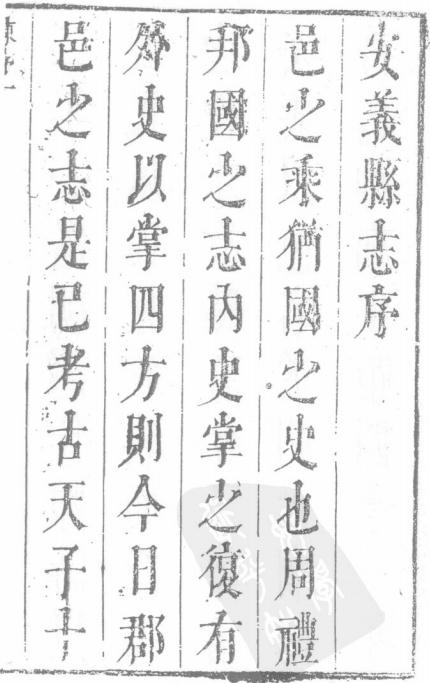 安義縣志序
邑之乘猶國之史也周禮
邦國之志內史掌之復有
外史以掌四方則今日郡
邑之志是已考古天子十